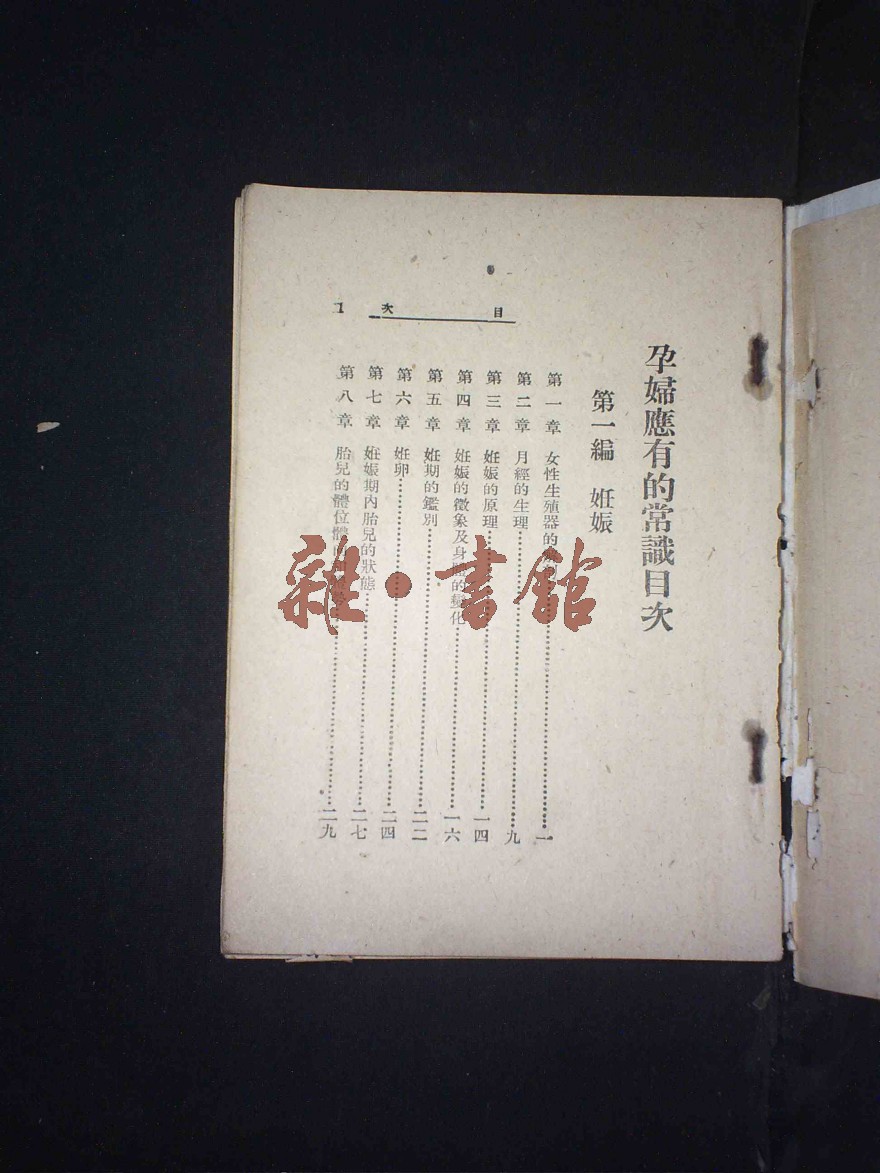 孕婦應有的常識目次
第一編 姙娠
第一章 女性生殖器的………一
第二章 月經的生理………九
第三章 姙娠的原理………一四
第四章 姙娠的徵象及身體的變化………一六
第五章 姙期的鑑別………二二
第六章 姙卵………二四
第七章 姙娠期內胎兒的狀態………二七
第八章 胎兒的體位體向………二九
目次 1
雜·書館